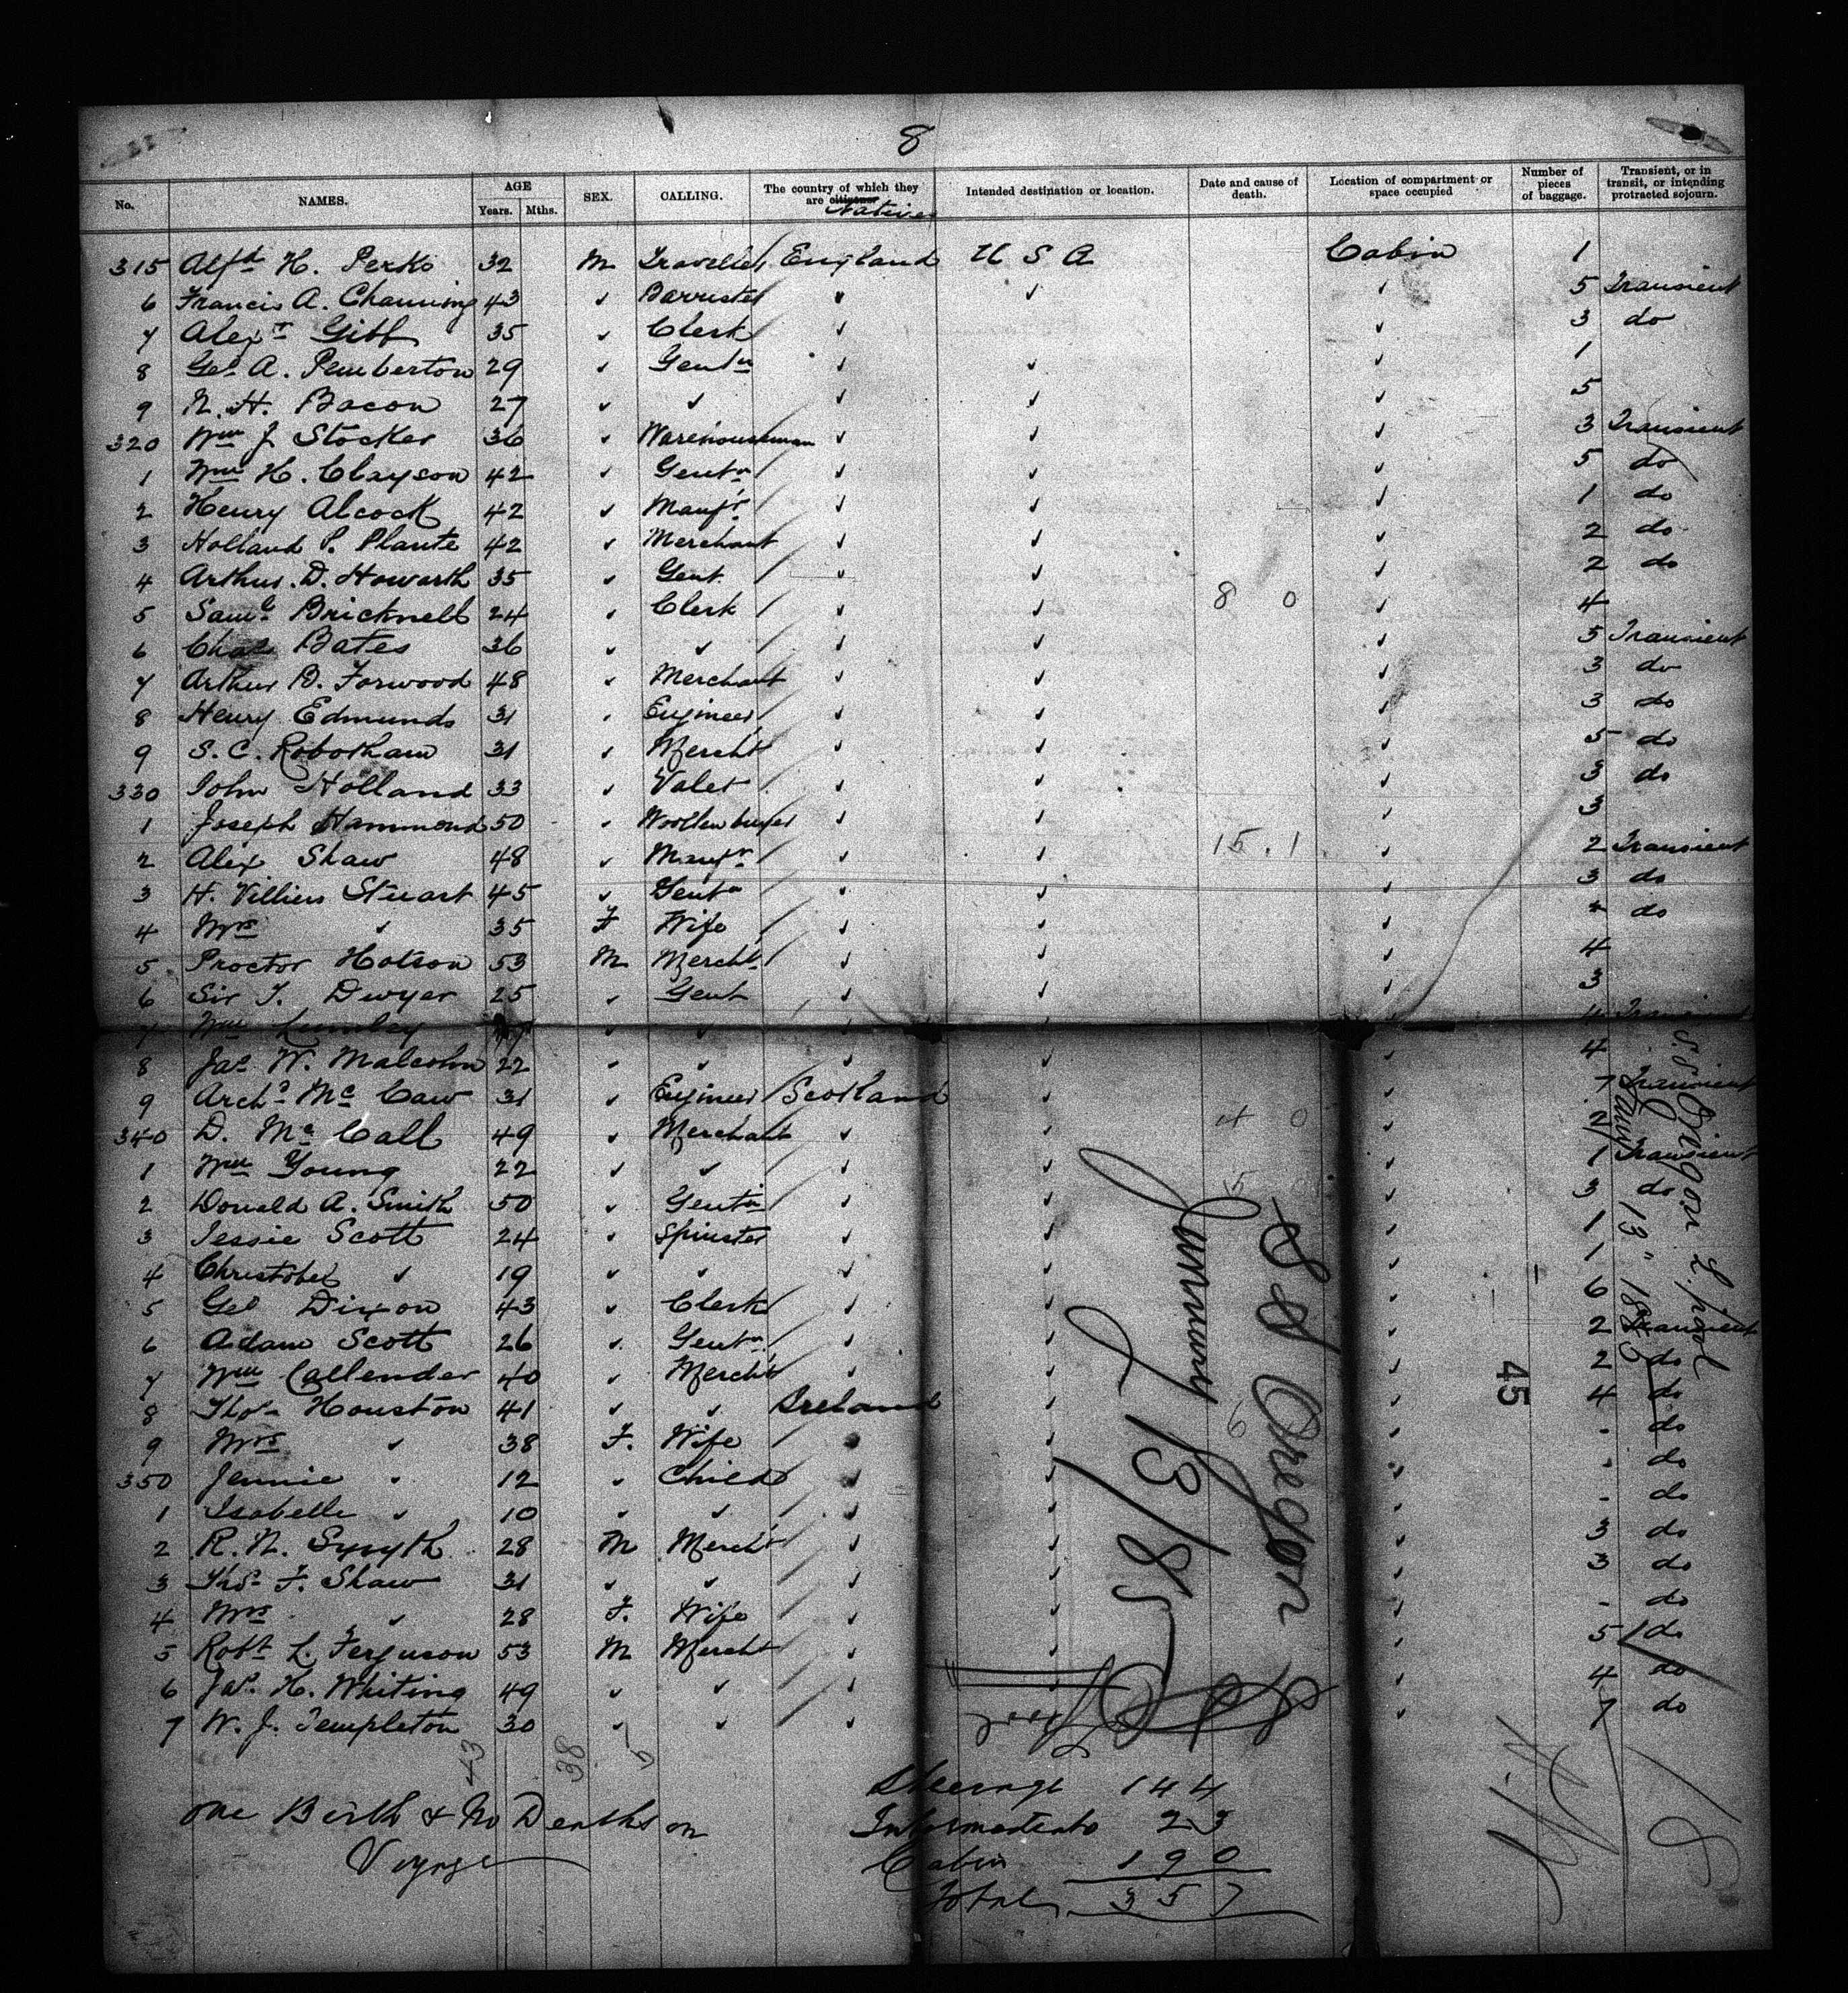 8
No. NAMES. AGE Years. Mths. SEX. CALLING. The country of which they are citizens Natives Intended destination or location. Date and cause of death. Location of compartment or space occupied Number of pieces of baggage. Transient, or in transit, or intending protracted sojourn.
315 Alfd H. Perks 32 M Traveller England U S A Cabin 1
6 Francis A. Channing 43 ✓ Barrister ✓ ✓ ✓ 5 Transient
7 Alexr Gibb 35 ✓ Clerk ✓ ✓ 3 do
8 Geo A. Pemberton 29 ✓ Gentn ✓ ✓ ✓ 1
9 N. H. Bacon 27 ✓ ✓ ✓ ✓ ✓ 5
320 Wm J Stocker 36 ✓ Warehouseman ✓ ✓ ✓ 3 Transient
1 Wm H. Clayson 42 ✓ Gentn ✓ ✓ ✓ 5 do
2 Henry Alcock 42 ✓ Manfr ✓ ✓ ✓ 1 do
3 Holland P. Plante 42 ✓ Merchant ✓ ✓ ✓ 2 do
4 Arthur D. Howarth 35 ✓ Gent ✓ ✓ ✓ 2 do
5 Saml Bricknell 24 ✓ Clerk ✓ ✓ 8 0 ✓ 4
6 Chas Bates 36 ✓ ✓ ✓ ✓ ✓ 5 Transient
7 Arthur B. Forwood 48 ✓ Merchant ✓ ✓ ✓ 3 do
8 Henry Edmunds 31 ✓ Engineer ✓ ✓ ✓ 3 do
9 S. C. Robotham 31 ✓ Mercht ✓ ✓ ✓ 5 do
330 John Holland 33 ✓ Valet ✓ ✓ ✓ 3 do
1 Joseph Hammond 50 ✓ Woollen buyer ✓ ✓ ✓ 3
2 Alex Shaw 48 ✓ Manfr ✓ ✓ 15.1 ✓ 2 Transient
3 H. Villiers Stuart 45 ✓ Gentn ✓ ✓ ✓ 3 do
4 Mrs ✓ 35 F Wife ✓ ✓ ✓ do
5 Proctor Hotson 53 M Mercht ✓ ✓ ✓ 4
6 Sir T. Dwyer 25 ✓ Gent ✓ ✓ ✓ 3
7 Wm Lumley ✓ ✓ ✓ ✓ ✓
8 Jas W. Malcolm 22 ✓ ✓ ✓ ✓ ✓ 4
9 Archd Mc Caw 31 ✓ Engineer Scotland ✓ ✓ 7 Transient
340 D. Mc Call 49 ✓ Merchant ✓ ✓ 4 0 ✓ 2
1 Wm Young 22 ✓ ✓ ✓ ✓ ✓ 1 Transient
2 Donald A. Smith 50 ✓ Gentn ✓ ✓ 5 ✓ 3 do
3 Jessie Scott 24 ✓ Spinster ✓ ✓ ✓ 1
4 Christobel ✓ 19 ✓ ✓ ✓ ✓ ✓ 1
5 Geo Dixon 43 ✓ Clerk ✓ ✓ ✓ 6
6 Adam Scott 26 ✓ Gentn ✓ ✓ ✓ 2 Transient
7 Wm Callender 40 ✓ Mercht ✓ ✓ ✓ 2 do
8 Thos Houston 41 ✓ ✓ Ireland ✓ ✓ 4 do
9 Mrs ✓ 38 F. Wife ✓ ✓ 6 ✓ - do
350 Jennie ✓ 12 ✓ Child ✓ ✓ ✓ - do
1 Isabella ✓ 10 ✓ ✓ ✓ ✓ ✓ - do
2 R. N. Smyth 28 M Mercht ✓ ✓ ✓ 3 do
3 Thos F. Shaw 31 ✓ ✓ ✓ ✓ ✓ 3 do
4 Mrs ✓ 28 F. Wife ✓ ✓ ✓ - do
5 Robt L. Ferguson 53 M Mercht ✓ ✓ ✓ 5 do
6 Jas. H. Whiting 49 ✓ ✓ ✓ ✓ ✓ 4 do
7 W. J. Templeton 30 ✓ ✓ ✓ ✓ 7 do
S S Oregon
January 13/85
S.S. Oregon L'pool
Jany 13" 1885
45
43 38
One Birth & No Deaths on
Voyage
Steerage 144
Intermediate 23
Cabin 190
Total 357